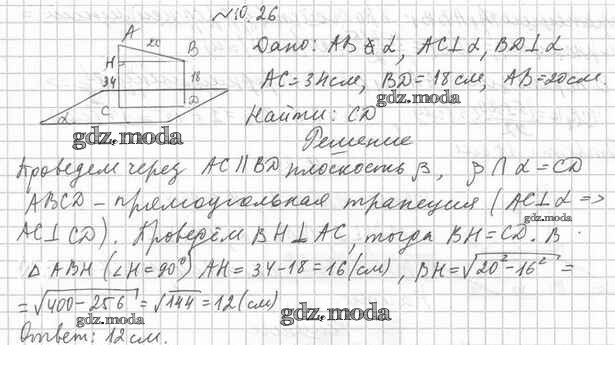 №10.26
A
20
B
H
34
18
C
D
α
Дано: AB ⊄ α, AC⊥α, BD⊥α
AC=34см, BD=18см, AB=20см.
Найти: CD
Решение
Проведем через AC∥BD плоскость β, β∩α=CD
ABCD – прямоугольная трапеция (AC⊥α =>
AC⊥CD). Проведём BH⊥AC, тогда BH=CD. В
△ABH (∠H=90°) AH=34-18=16(см), BH=√20²-16² =
=√400-256 =√144=12(см)
Ответ: 12см.
gdz.moda
gdz.moda
gdz.moda
gdz.moda
gdz.moda